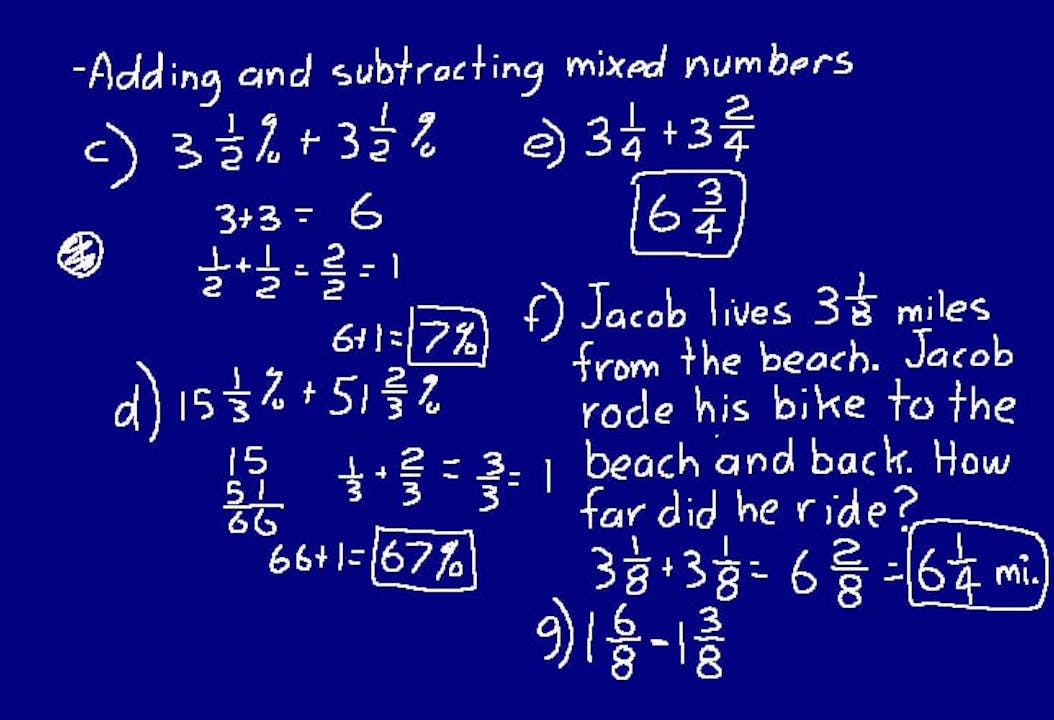 -Adding and subtracting mixed numbers
c) 3 1/2 % + 3 1/2 %
3+3 = 6
1/2 + 1/2 = 2/2 = 1
6+1= 7%
d) 15 1/3 % + 51 2/3 %
15
51
66
1/3 + 2/3 = 3/3 = 1
66+1= 67%
e) 3 1/4 + 3 2/4
6 3/4
f) Jacob lives 3 1/8 miles
from the beach. Jacob
rode his bike to the
beach and back. How
far did he ride?
3 1/8 + 3 1/8 = 6 2/8 = 6 1/4 mi.
g) 1 6/8 - 1 3/8